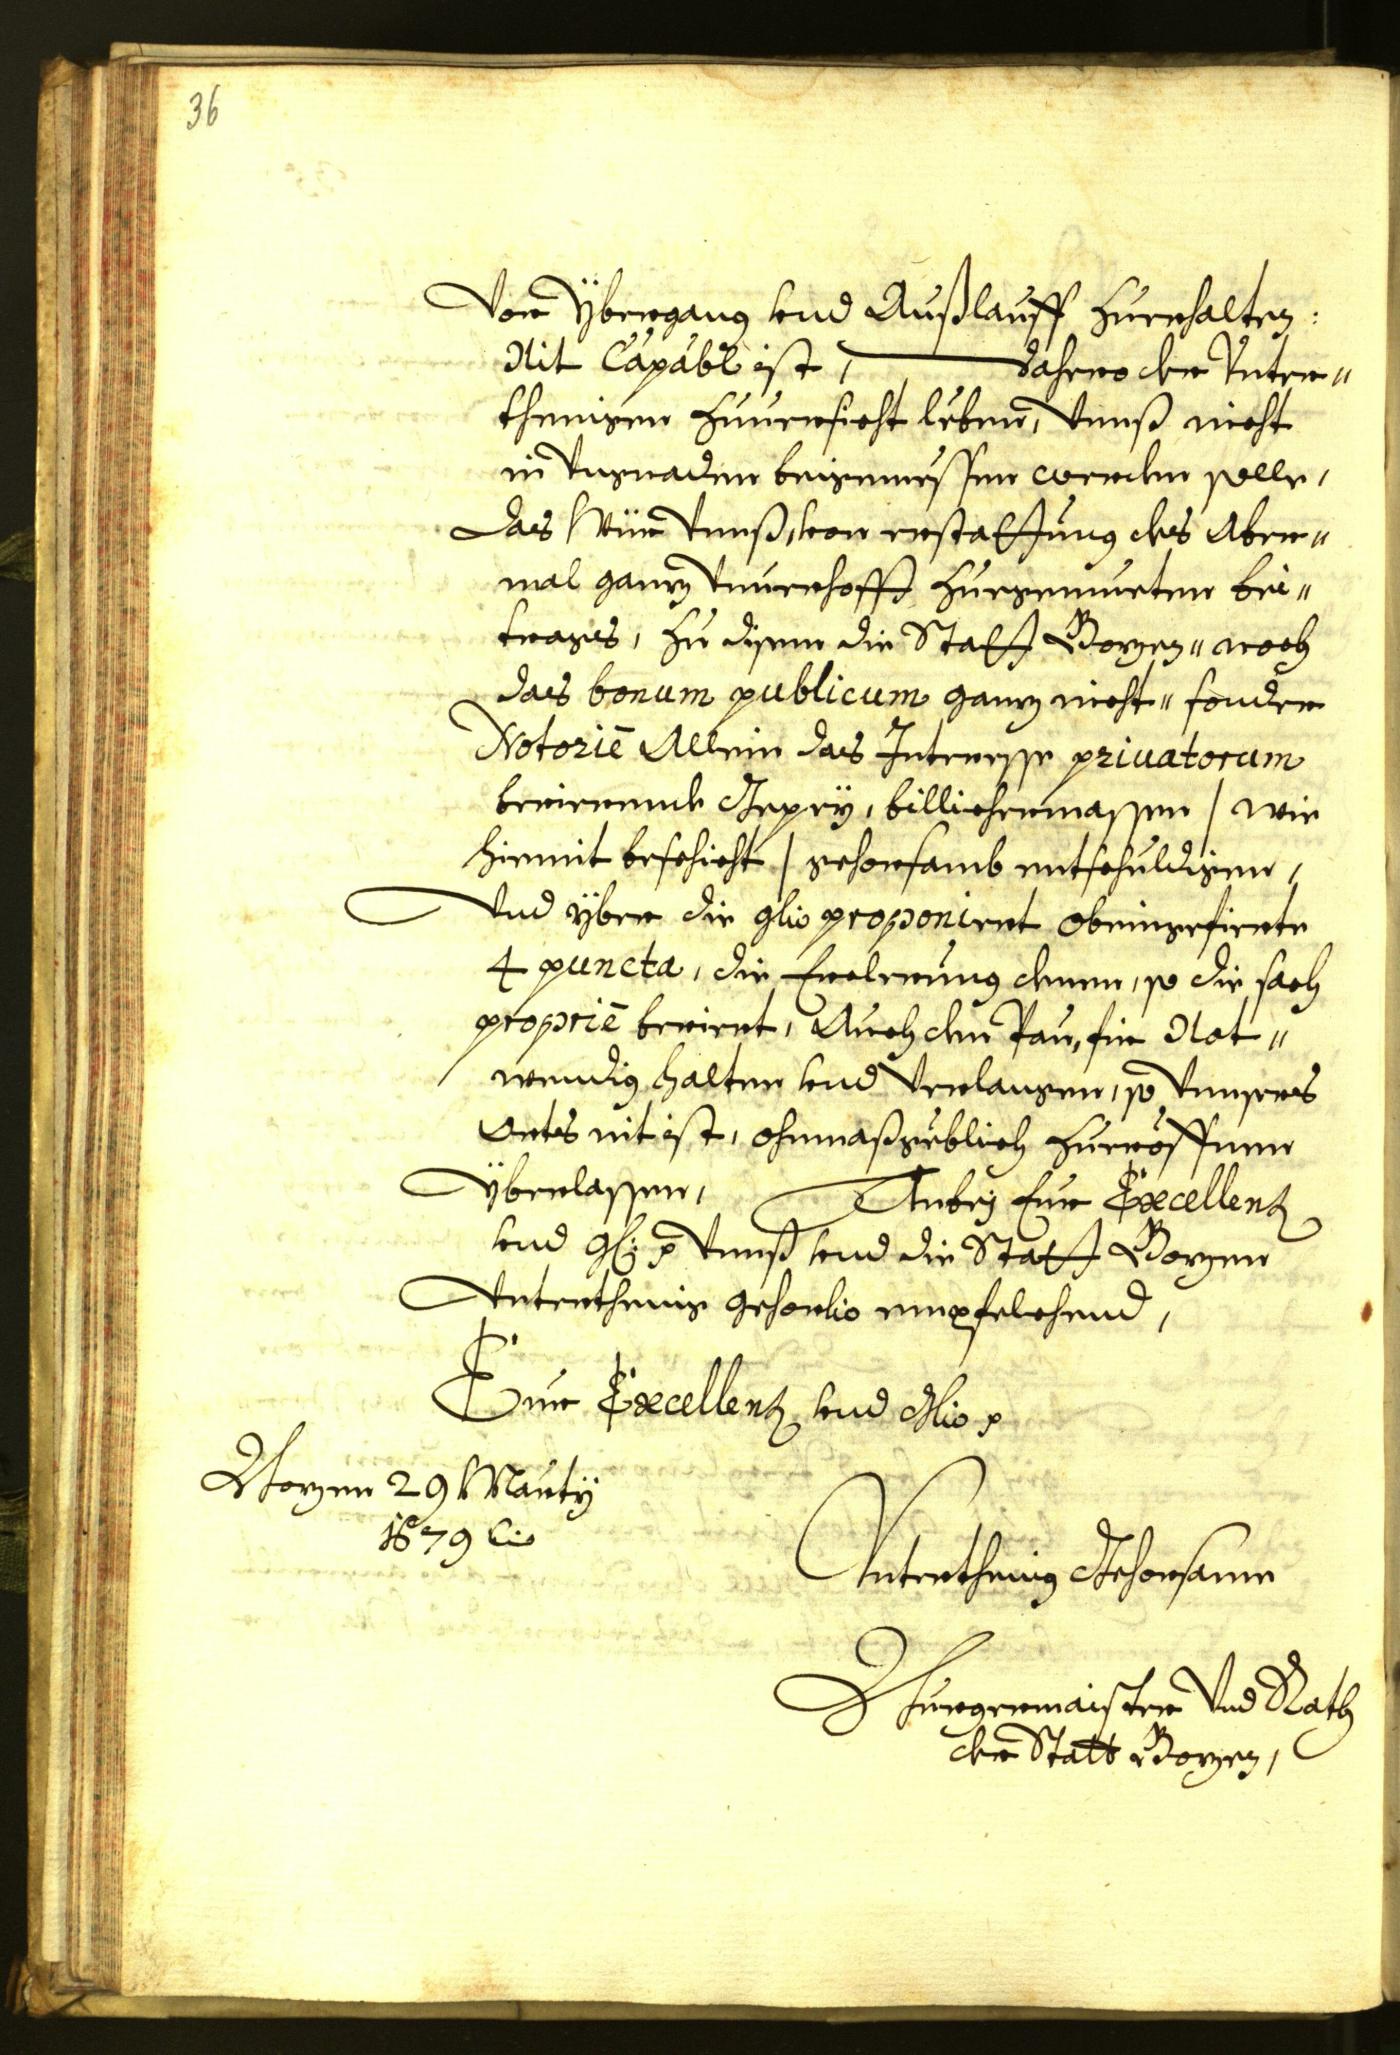 36
Vor Ybergang vnd Außlauff zuerhalten:
Nit Capabl ist, dahero der Vnter„
thenigen zuuersicht leben, Vnnß nicht
in Vngnaden beigemessen werden solle,
das Wür Vnnß, von erstattung des Aber„
mal ganz Vnuerhofft zuegemueten bei„
trages, zu disem die Statt Bozen„ noch
das bonum publicum ganz nicht„ sonder
Notoriè Allein das Interesse priuatorum
berierende Reprÿ, billichermassen / wie
hiemit beschicht / gehorsamb entschuldigen,
Vnd yber die proponiert obeingefierte
4 puncta, die Erelerung denen, so die sach
propriè beriert, Auch den Pau, für Not„
wendig halten vnd Verlangen, so Vnnsers
Orts nit ist, ohnmaßgeblich zueröffnen
Yberlassen, Anbej Eur Excellenz
vnd Vnnß vnd die Statt Bozen
Vntertheniggehorsambst empfelchend,
Eur Excellenz vnd
Bozen 29 Martÿ
1679
Vnterthenig Gehorsame
Burgermaister Vnd Rath
der Statt Bozen,